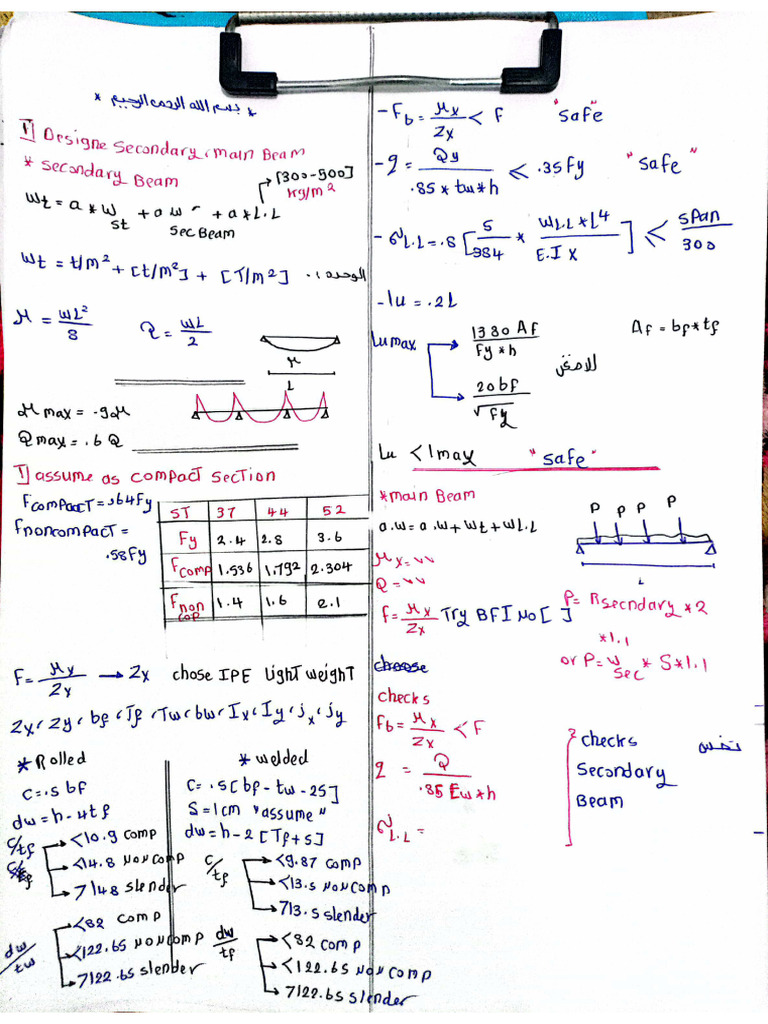 * بسم الله الرحمن الرحيم *
1] Designe secondary, main Beam
* secondary Beam
[300-500]
kg/m²
Wt = a * W st + o.w sec Beam + a * L.L
Wt = t/m² + [t/m²] + [T/m²] الوحده
M = WL²/8 Q = WL/2
M
L
M max = .9M
Q max = .6 Q
1] assume as compact section
F compact = .64Fy
F noncompact = .58Fy
ST 37 44 52
Fy 2.4 2.8 3.6
F comp 1.536 1.792 2.304
F non cop 1.4 1.6 2.1
F = Mx/Zx → Zx chose IPE Light weight
Zx, Zy, bf, Tf, Tw, bw, Ix, Iy, jx, jy
* Rolled
c = .5 bf
dw = h - 4tf
c/tf
<10.9 comp
<14.8 non comp
7148 slender
dw/tw
<82 comp
<122.65 non comp
7122.65 slender
* welded
c = .5[bf - tw - 2S]
S = 1cm "assume"
dw = h - 2[Tf + s]
c/tf
<9.87 comp
<13.5 non comp
713.5 slender
dw/tf
<82 comp
<122.65 non comp
7122.65 slender
- Fb = Mx/Zx < F "safe"
- q = Qy/.85 * tw * h ≤ .35Fy "safe"
- δL.L = .8 [5/384 * WL.L * L⁴/E.IX] < span/300
- lu = .2L
Lu max
1380 Af/Fy * h
Af = bf * tf
20bf/√Fy
Lu < lmax "safe"
* main Beam
P P P P
o.w = o.w + Wt + WL.L
L
Mx = ✓✓
Q = ✓✓
P = Rsecndary * 2 * 1.1
f = Mx/Zx Try BFI No [ ]
or P = W sec * S * 1.1
choose
checks
Fb = Mx/Zx < F
q = Q/.85 Ew * h
δL.L =
checks نفس
Secondary
Beam